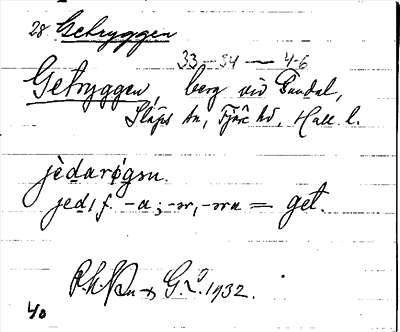 28 Getryggen
33-34 — 4-6
Getryggen, berg vid Sundal,
Släps sn, Fjäre hd, Hall. l.
jèdarøgən.
jed, f. -a; -ər, -ərna = get.
G. 1932.
40